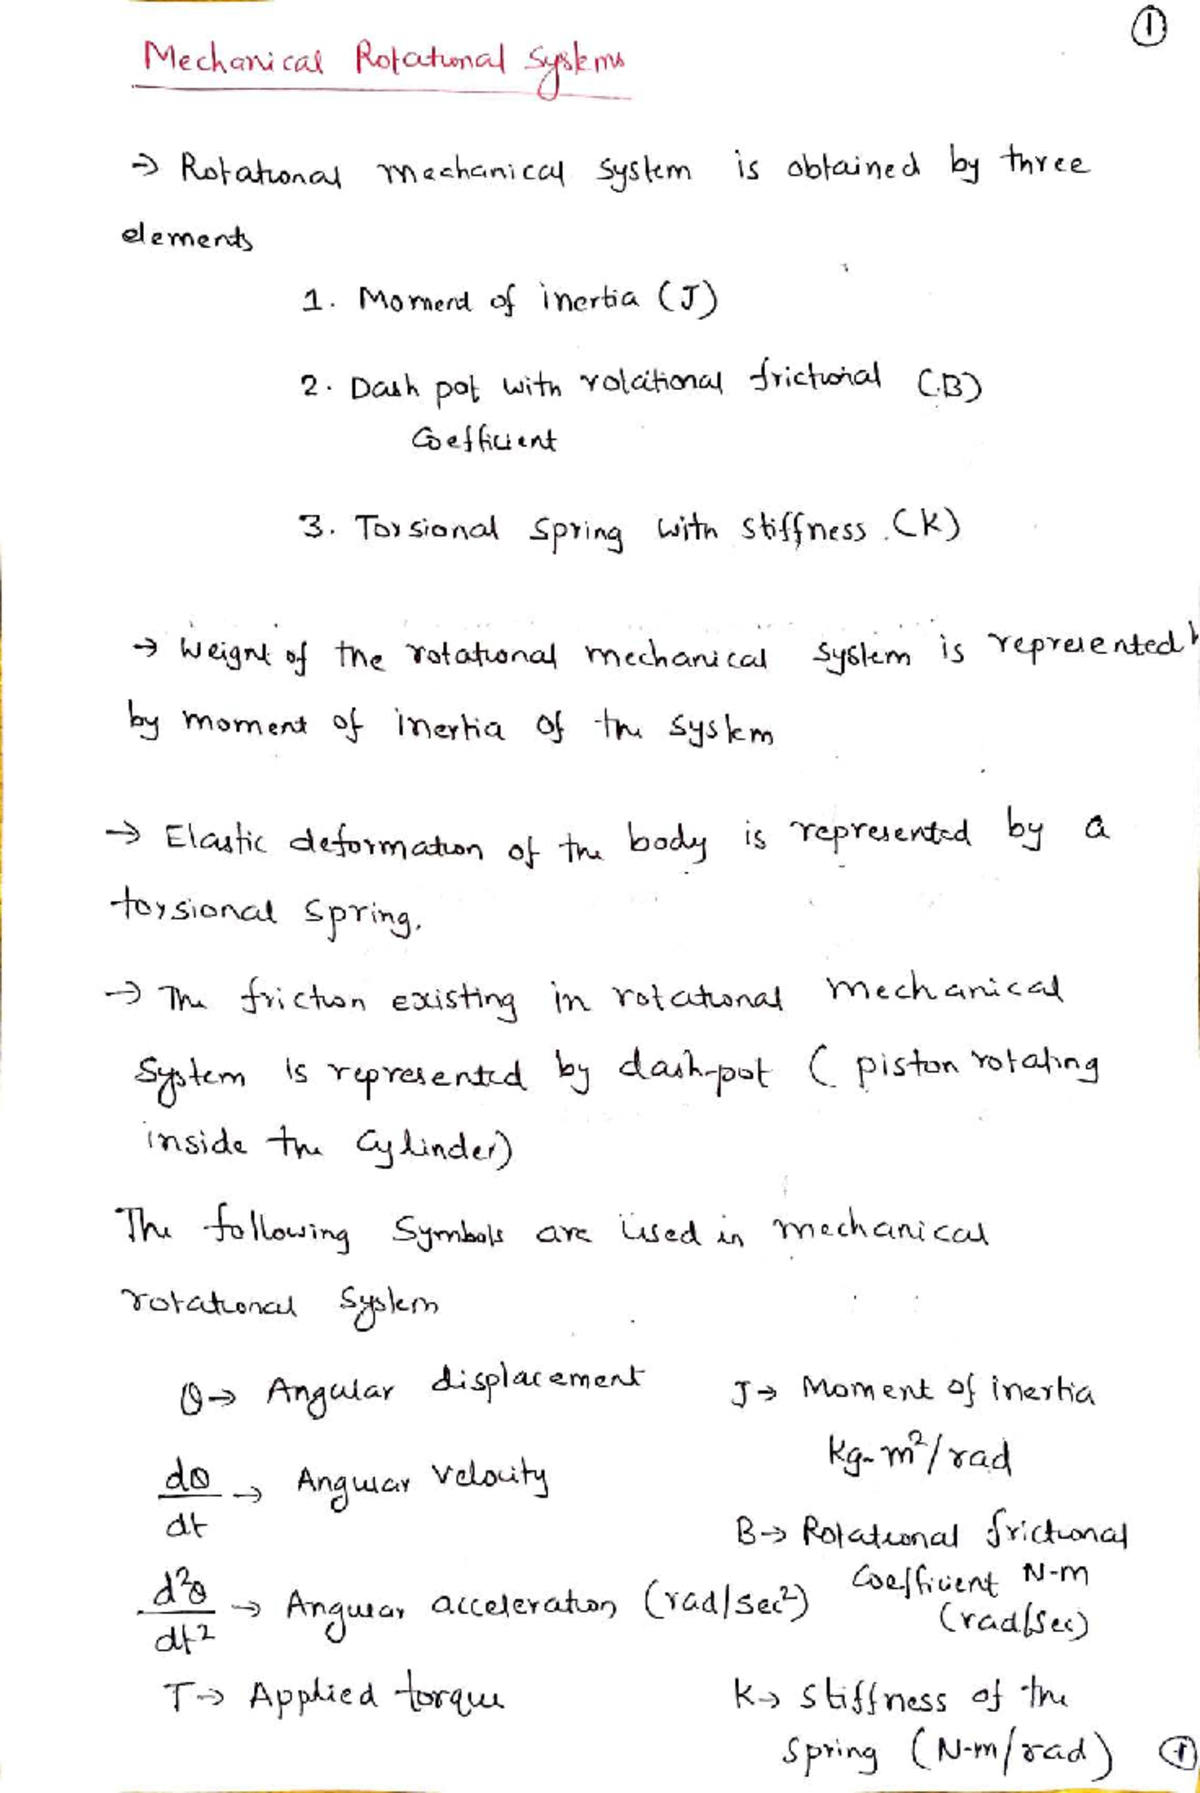 1
Mechanical Rotational Systems
→ Rotational mechanical system is obtained by three
elements
1. Moment of inertia (J)
2. Dash pot with rotational frictional (B)
Coefficient
3. Torsional spring with stiffness (K)
→ Weight of the rotational mechanical system is represented
by moment of inertia of the system
→ Elastic deformation of the body is represented by a
torsional spring.
→ The friction existing in rotational mechanical
system is represented by dash-pot ( piston rotating
inside the cylinder)
The following Symbols are used in mechanical
rotational system
θ → Angular displacement
J → Moment of inertia
kg-m²/rad
dθ/dt → Angular velocity
B → Rotational frictional
Coefficient N-m
(rad/sec)
d²θ/dt² → Angular acceleration (rad/sec²)
T → Applied torque
K → Stiffness of the
spring (N-m/rad)